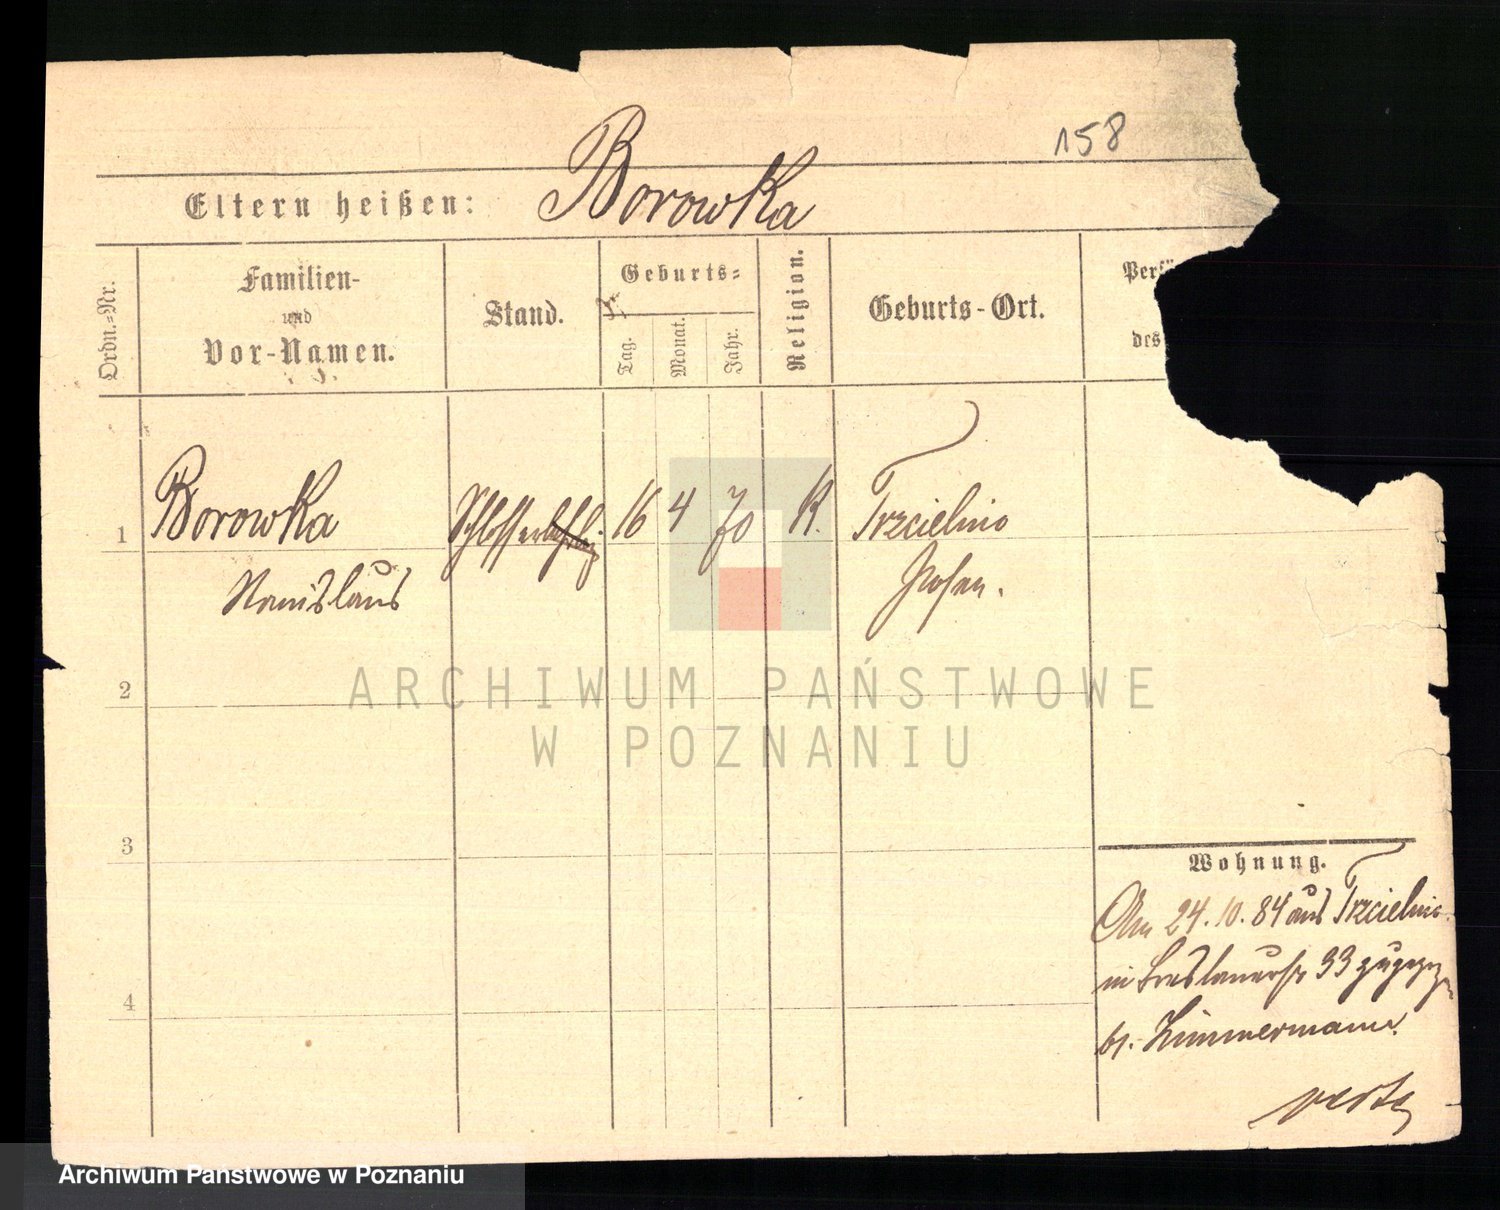 158
Eltern heißen: Borowka
Ordn.-Nr.
Familien-
und
Vor-Namen.
Stand.
Geburts-
Tag.
Monat.
Jahr.
Religion.
Geburts-Ort.
des
1 Borowka Schlosserlehrlg. 16 4 70 K. Trzcielino
Stanislaus Posen.
2
3
4
Wohnung.
Am 24.10.84 aus Trzcielino
in Breslauerstr 33 zugezg
bei Zimmermann.
verte
ARCHIWUM PAŃSTWOWE
W POZNANIU
Archiwum Państwowe w Poznaniu